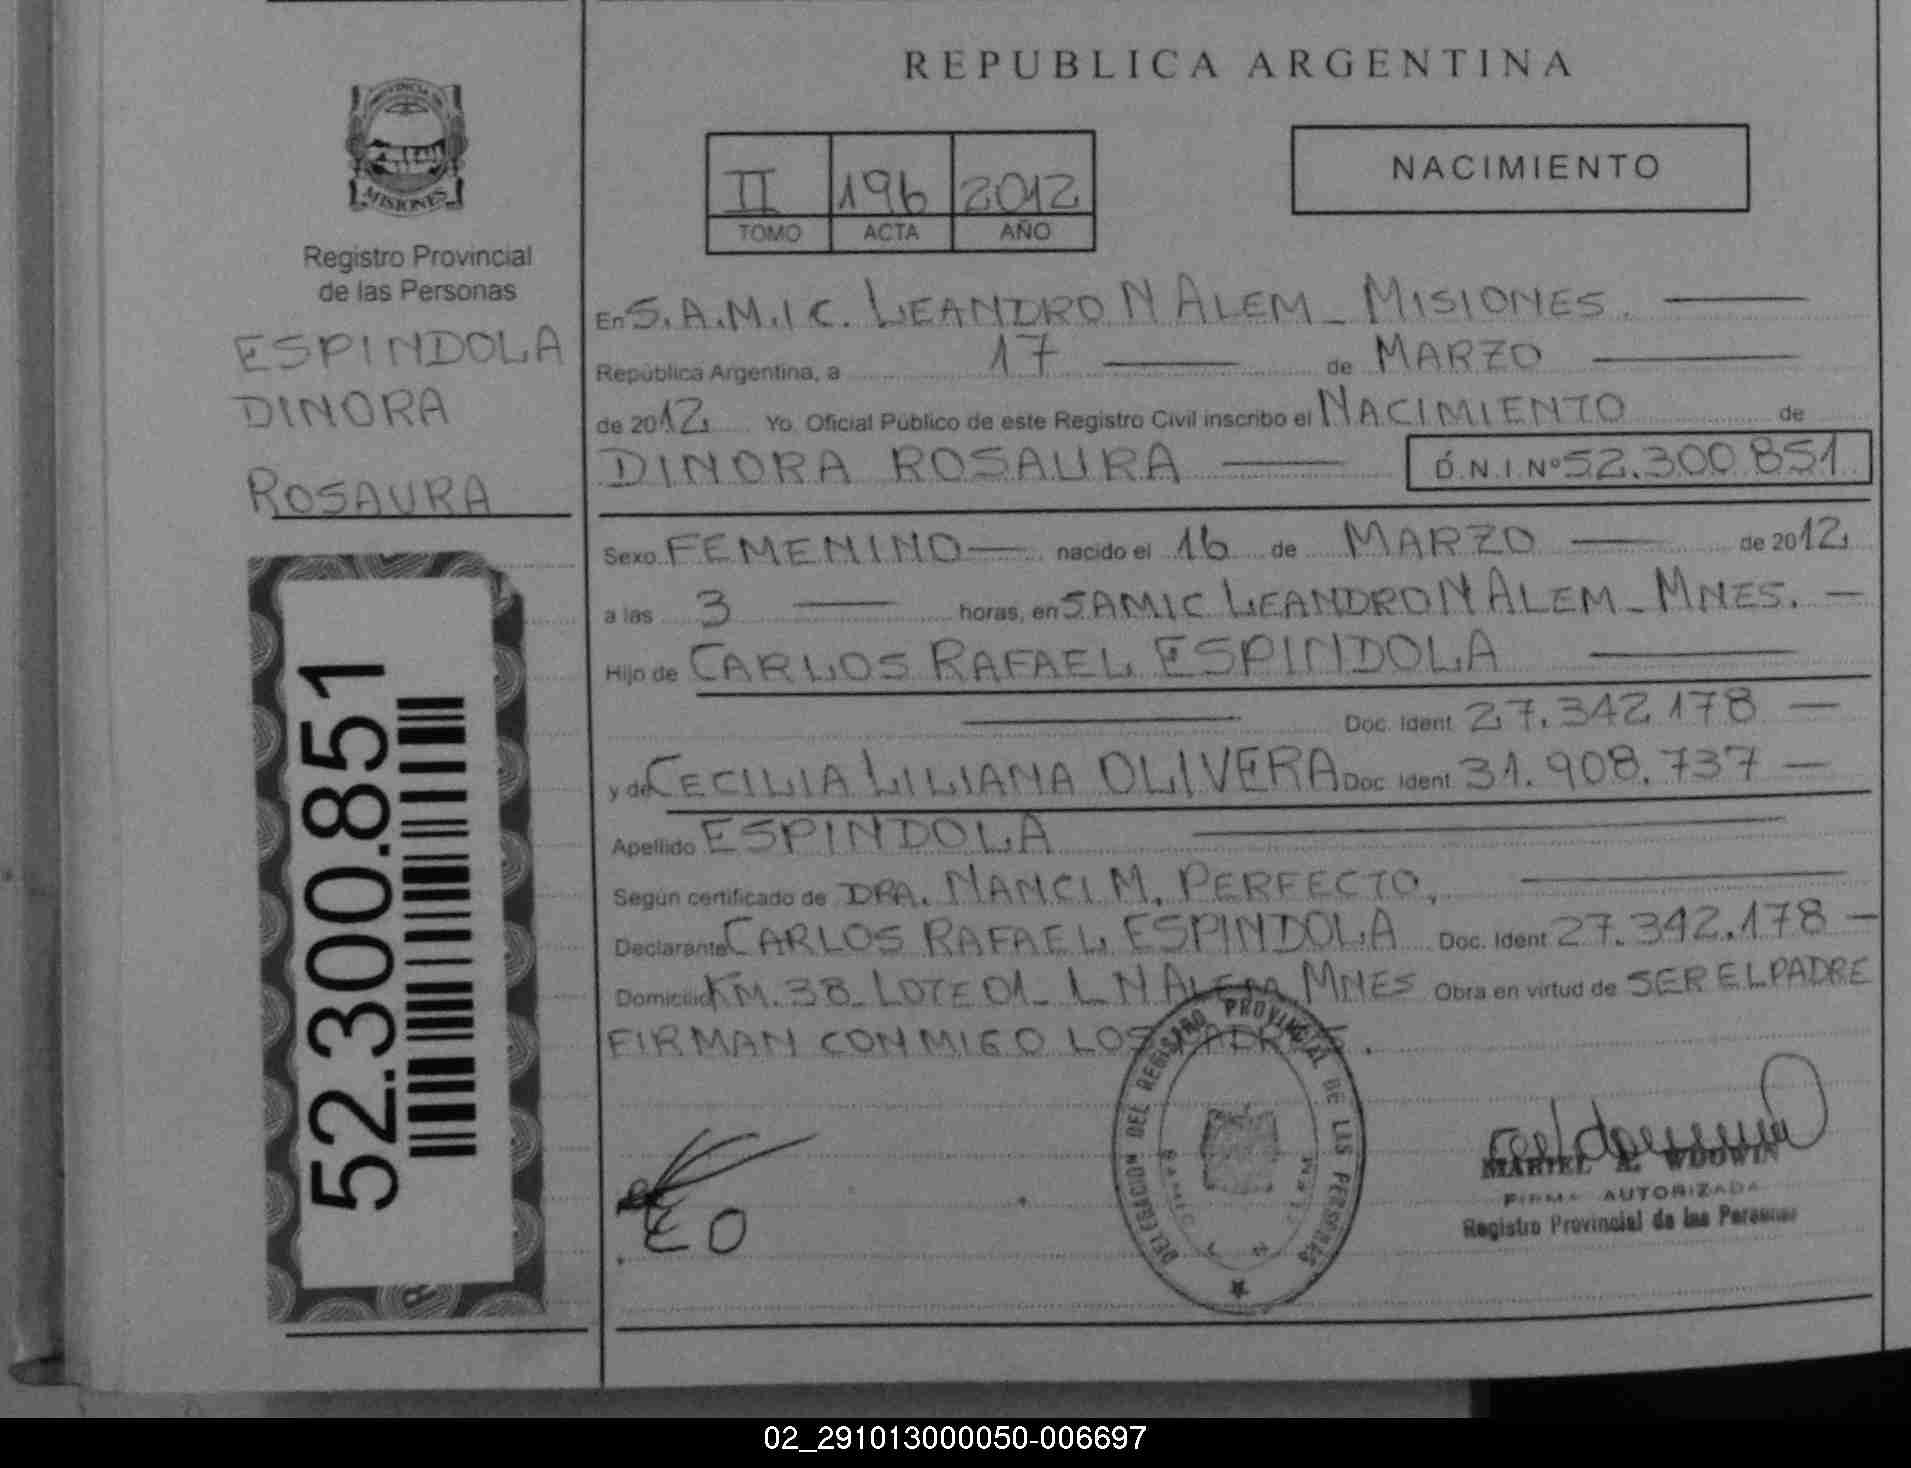 REPUBLICA ARGENTINA
PROVINCIA DE
MISIONES
Registro Provincial
de las Personas
ESPINDOLA
DINORA
ROSAURA
52.300.851
II 196 2012
TOMO ACTA AÑO
NACIMIENTO
En S.A.M.I C. LEANDRO N ALEM_ MISIONES.
República Argentina, a 17 de MARZO
de 2012 Yo. Oficial Público de este Registro Civil inscribo el NACIMIENTO de
DINORA ROSAURA D.N.I.Nº 52.300.851
Sexo FEMENINO nacido el 16 de MARZO de 2012
a las 3 horas, en SAMIC LEANDRO N ALEM_ MNES.
Hijo de CARLOS RAFAEL ESPINDOLA
Doc. Ident 27.342.178
y de CECILIA LILIANA OLIVERA Doc. Ident 31.908.737
Apellido ESPINDOLA
Según certificado de DRA. NANCI M. PERFECTO,
Declarante CARLOS RAFAEL ESPINDOLA Doc. Ident 27.342.178
Domicilio KM. 38_ LOTE 01_ L N ALEM MNES Obra en virtud de SER EL PADRE
FIRMAN CONMIGO LOS PADRES.
DELEGACION DEL REGISTRO PROVINCIAL DE LAS PERSONAS
MARIEL A. WDOWIN
FIRMA AUTORIZADA
Registro Provincial de las Personas
02_291013000050-006697